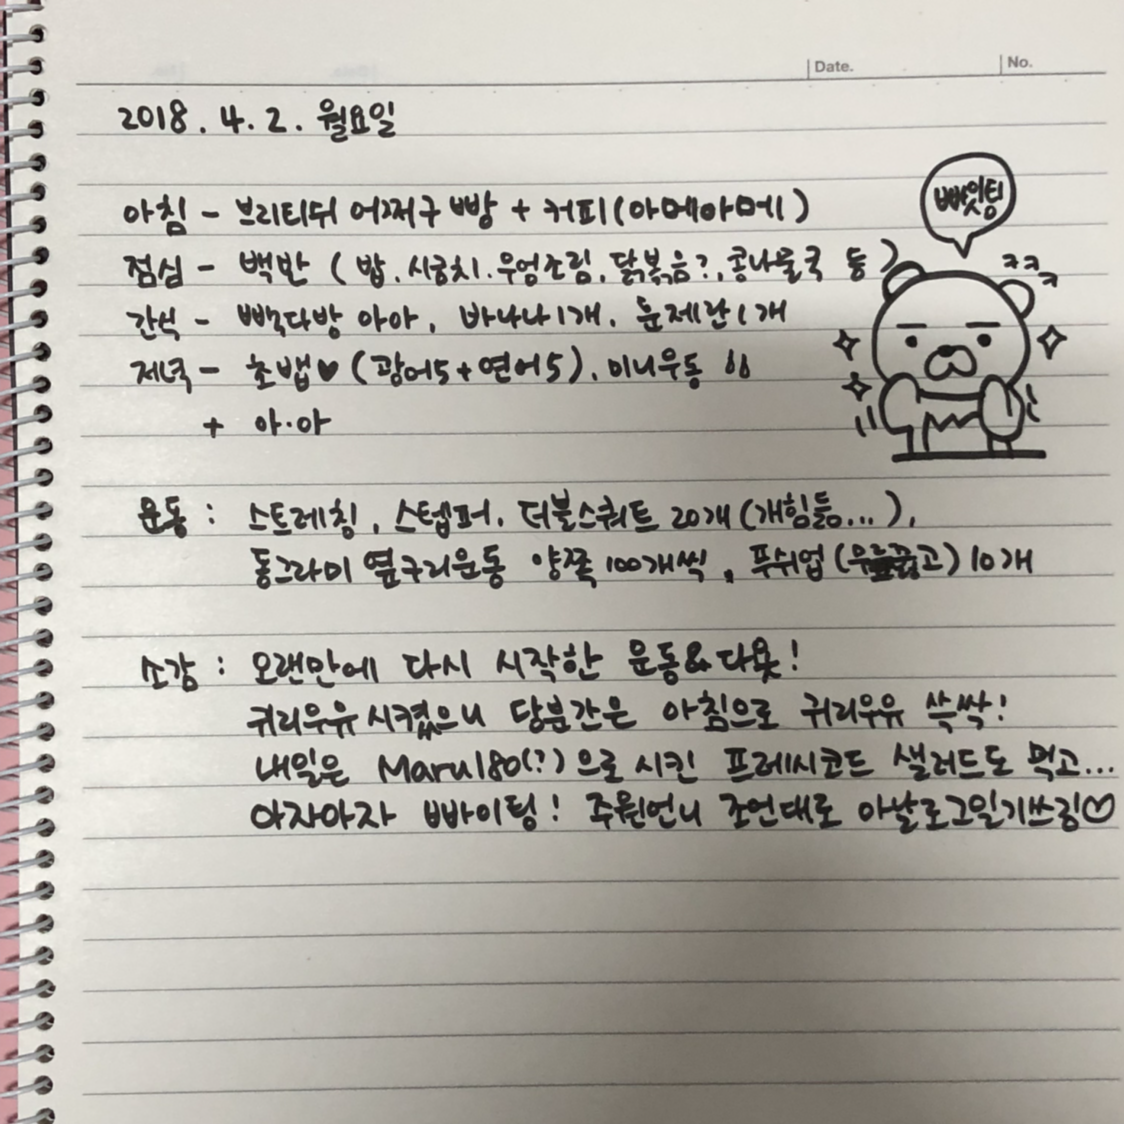 Date. No.
2018. 4. 2. 월요일
아침 - 브리티쉬 어쩌구 빵 + 커피(아메아메)
빠잇팅
점심 - 백반 ( 밥. 시금치. 우엉조림. 닭볶음?, 콩나물국 등 )
ㅋㅋㅋ
간식 - 빽다방 아아, 바나나1개, 훈제란1개
저녁 - 초밥♥ (광어5+연어5), 미니우동 !!
+ 아.아
운동 : 스트레칭, 스텝퍼, 더블스쿼트 20개 (개힘듦...),
동그라미 옆구리운동 양쪽 100개씩, 푸쉬업 (무릎꿇고) 10개
소감 : 오랜만에 다시 시작한 운동&다욧!
귀리우유 시켰으니 당분간은 아침으로 귀리우유 쓱싹!
내일은 Maru180(?)으로 시킨 프레시코드 샐러드도 먹고...
아자아자 빠이팅! 주원언니 조언대로 아날로그일기쓰깅♡